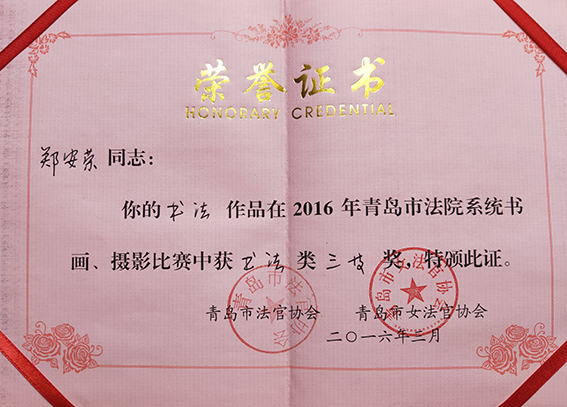 荣誉证书
HONORARY CREDENTIAL
郑安荣同志：
你的书法作品在2016年青岛市法院系统书
画、摄影比赛中获书法类三等奖，特颁此证。
青岛市法官协会 青岛市女法官协会
二〇一六年二月
青岛市法官协会
青岛市女法官协会